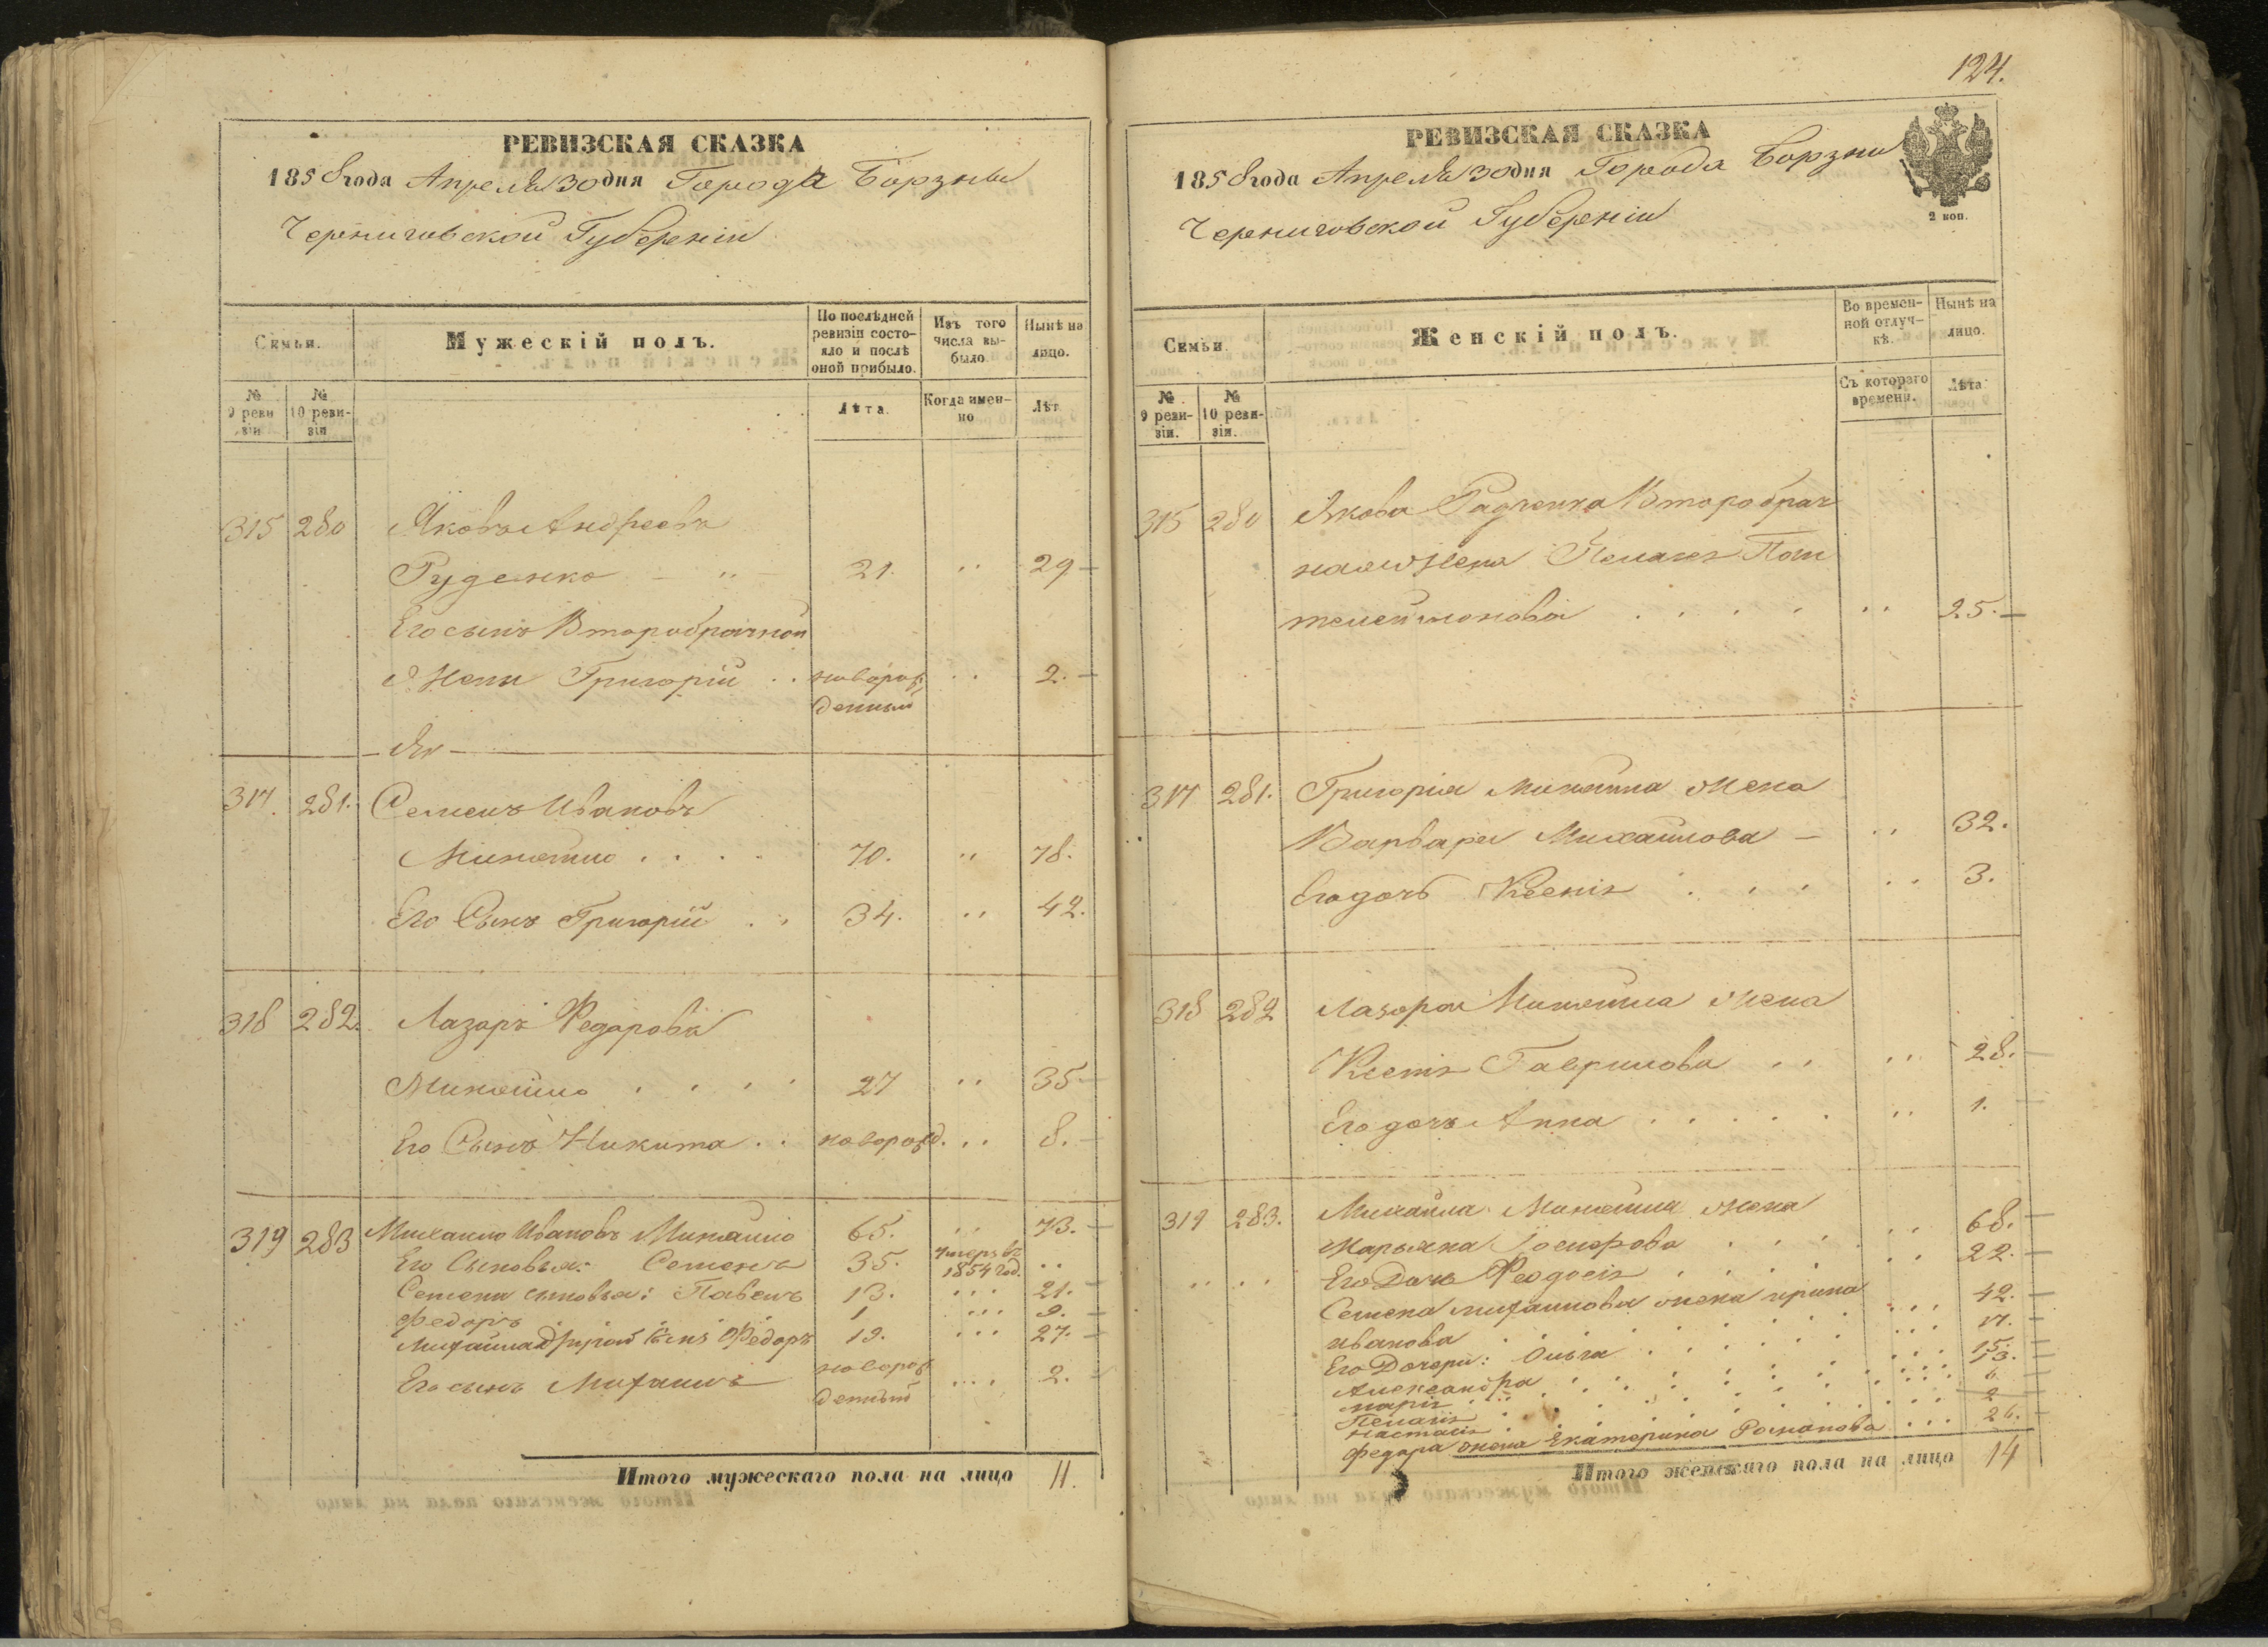 РЕВИЗСКАЯ СКАЗКА
1858 года Апреля 30 дня Города Борзны
Черниговской Губерніи
Семьи.
Мужескій полъ.
По послѣдней ревизіи состояло и послѣ оной прибыло.
Изъ того числа выбыло.
Нынѣ на лицо.
№ 9 ревизіи
№ 10 ревизіи
Лѣта.
Когда именно
Лѣт
315 280 Яковъ Андреевъ
Руденко 21. " 29
Его сынъ Второбрачной
Жены Григорій .. новорожденный .. 2.
317 281. Семенъ Ивановъ
Минайло . . . . 70. " 78.
Его Сынъ Григорій . . 34. .. 42.
318 282. Лазаръ Федоровъ
Минайло . . . . 27 .. 35
Его Сынъ Никита . . новорожд. .. 8.
319 283 Михайло Ивановъ Минайло 65. .. 73.
Его Сыновья: Семенъ 35. Умеръ въ 1854 год. ..
Семена сыновья: Павелъ 13. ... 21.
Федоръ 1 ... 9.
Михайла другой сынъ Федоръ 19. ... 27.
Его сынъ Михаилъ новорожденный .... 2.
Итого мужескаго пола на лицо 11.
124.
РЕВИЗСКАЯ СКАЗКА
1858 года Апреля 30 дня Города Борзны
Черниговской Губерніи
2 коп.
Семьи.
Женскій полъ.
Во временной отлучкѣ.
Нынѣ на лицо.
№ 9 ревизіи.
№ 10 ревизіи.
Съ котораго времени.
Лѣта
315 280 Якова Второбрач
ная жена Пелагея Пан
телеймонова . . . . .. 25.
317 281. Григорія Минайла жена
Варвара Михайлова .. 32.
Его дочь Ксенія . . . .. 3.
318 282 Лазаря Минайла жена
Ксенія Гаврилова .. .. 28.
Его дочь Анна . . . . . .. 1.
319 283. Михайла Минайла жена
Марьяна . . . .. 68.
Его Дочь Феодосія . . . . .. 22.
Семена Михайлова жена Ирина
Иванова ... 42.
Его Дочери: Ольга ... 17.
Александра ... 15.
Марія ... 13.
Пелагія ... 6
Настасія ... 2
Федора жена Екатерина Романова ... 26.
Итого женскаго пола на лицо 14